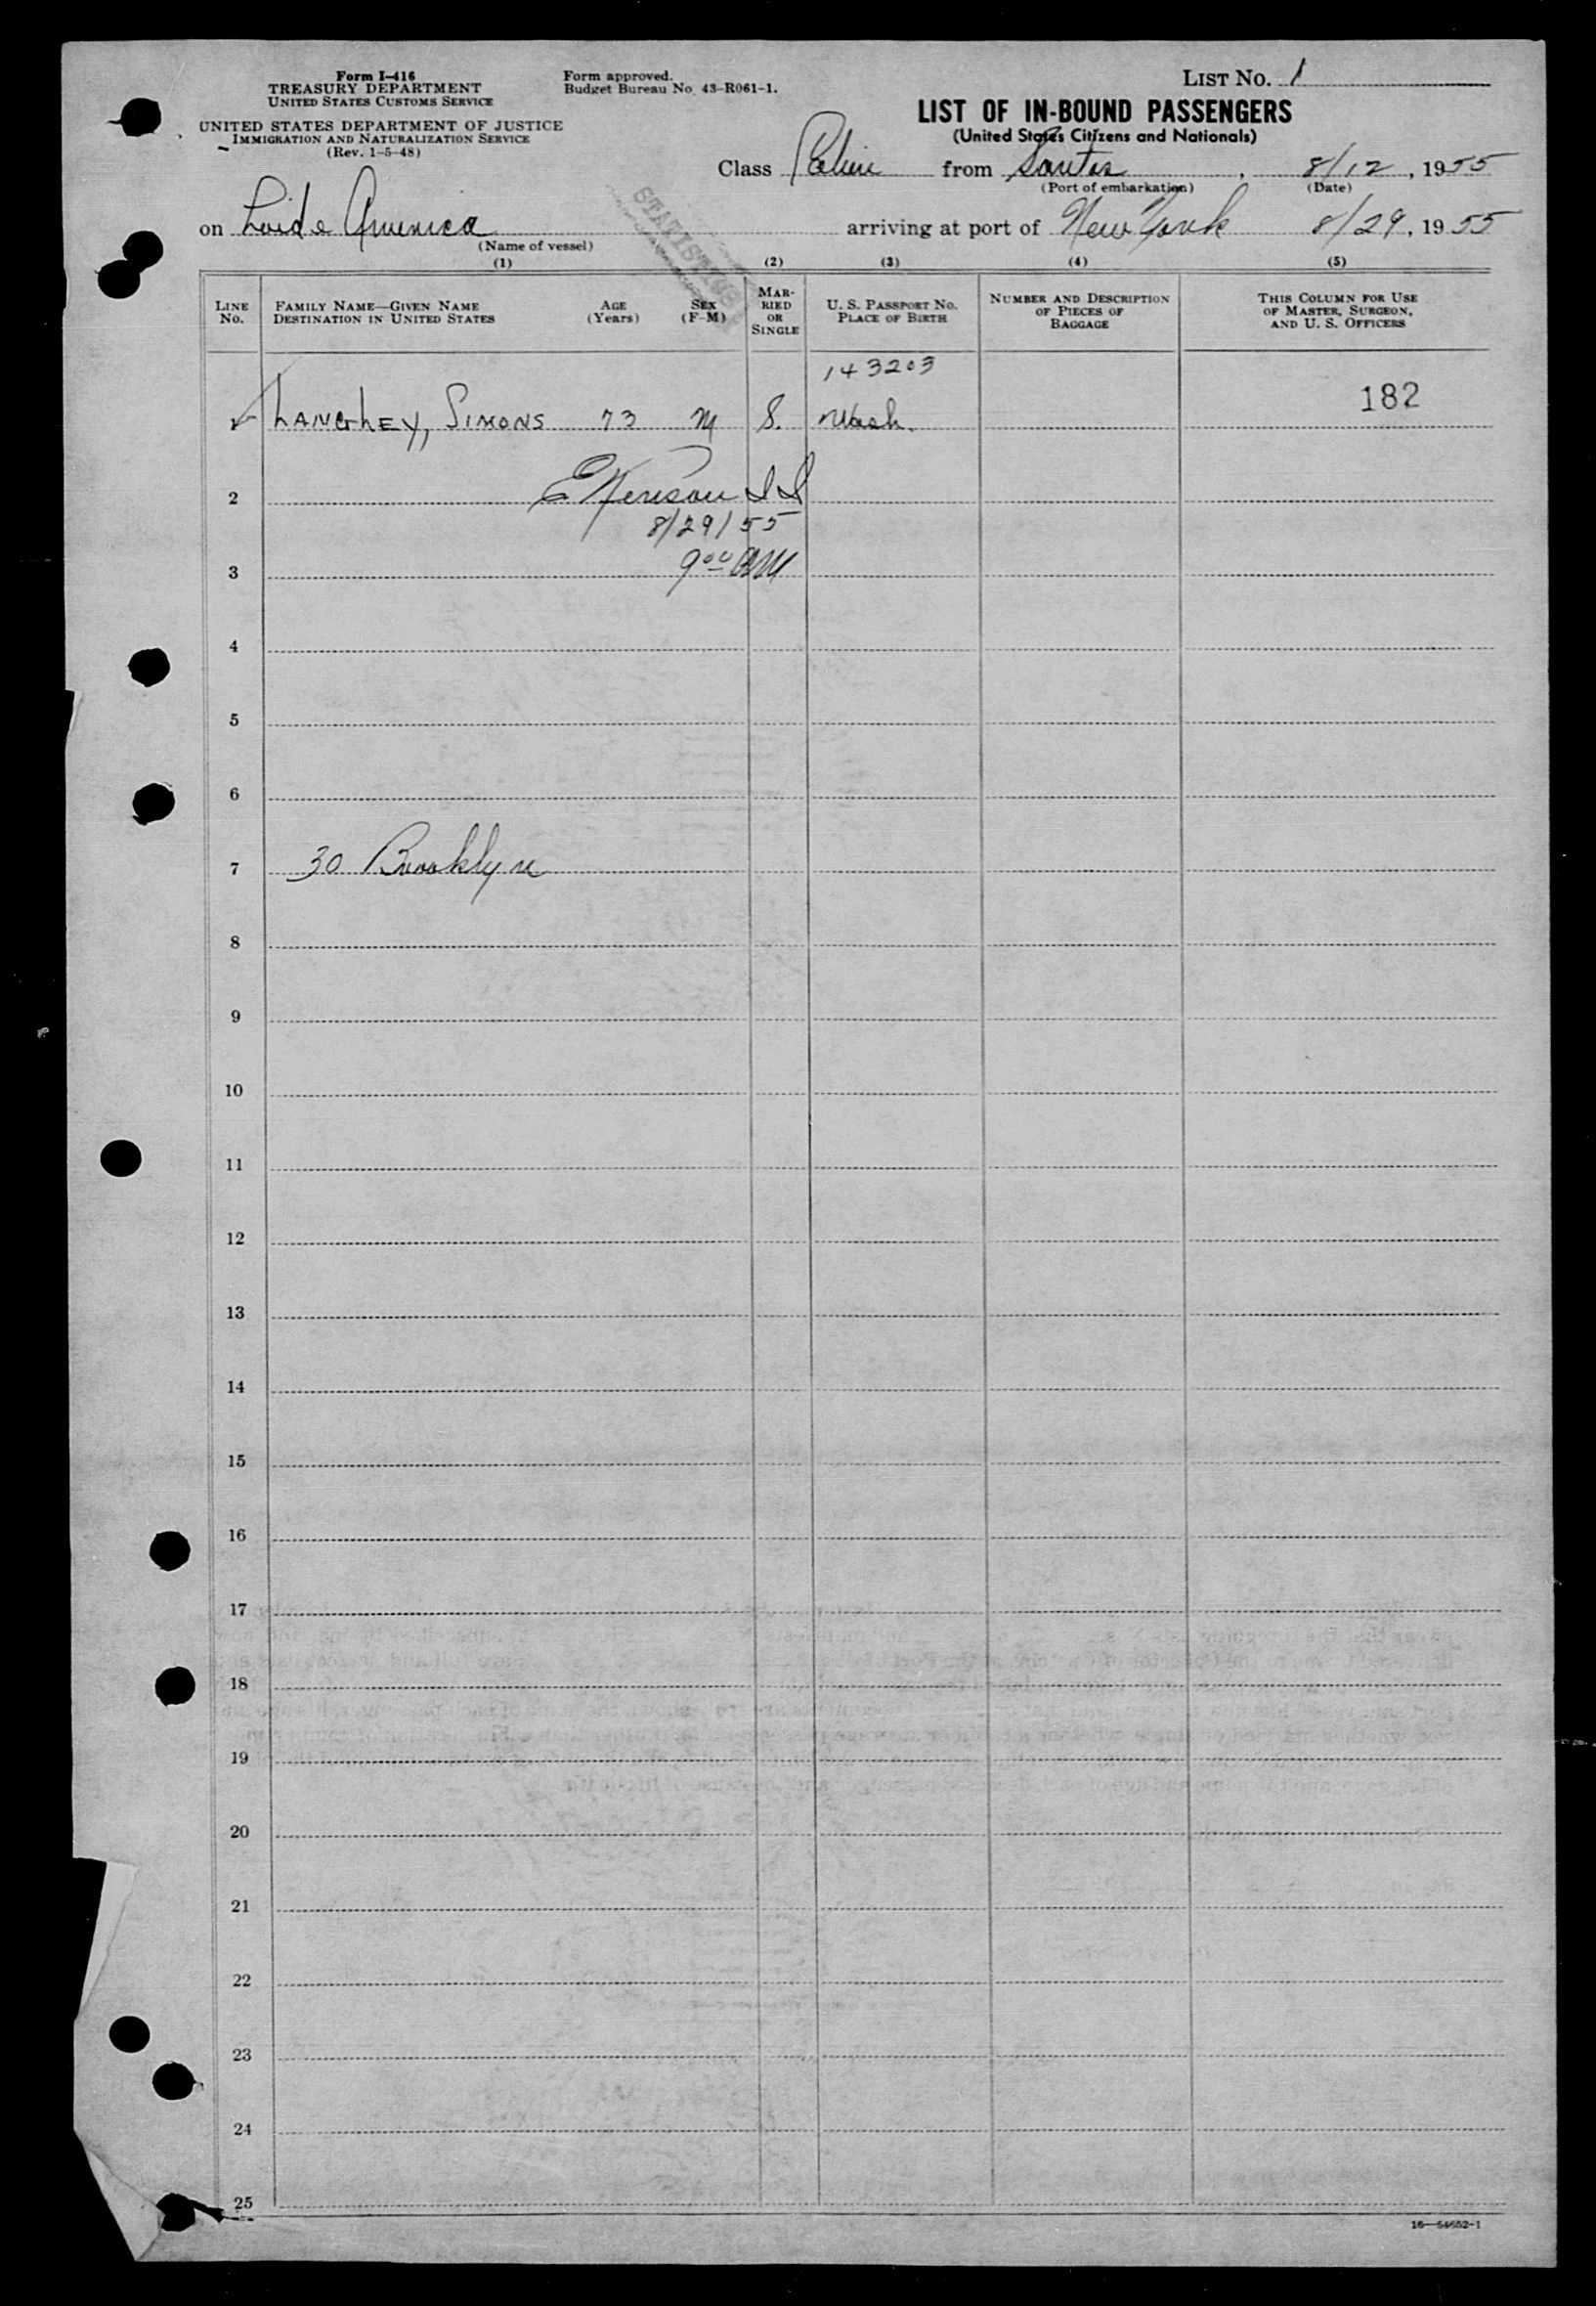 Form I-416
TREASURY DEPARTMENT
UNITED STATES CUSTOMS SERVICE
UNITED STATES DEPARTMENT OF JUSTICE
IMMIGRATION AND NATURALIZATION SERVICE
(Rev. 1-5-48)
Form approved.
Budget Bureau No. 43-R061-1.
LIST No. 1
LIST OF IN-BOUND PASSENGERS
(United States Citizens and Nationals)
Class Cabin from Santos, 8/12, 1955
(Port of embarkation) (Date)
on Loide America arriving at port of New York 8/29, 1955
(Name of vessel)
STATISTICS
(1) (2) (3) (4) (5)
LINE No.
FAMILY NAME—GIVEN NAME DESTINATION IN UNITED STATES
AGE (Years)
SEX (F-M)
MARRIED OR SINGLE
U. S. PASSPORT No. PLACE OF BIRTH
NUMBER AND DESCRIPTION OF PIECES OF BAGGAGE
THIS COLUMN FOR USE OF MASTER, SURGEON, AND U. S. OFFICERS
143203
182
LANGHEY, SIMONS 73 M S. Wash.
2
8/29/55
3 900 AM
4
5
6
7 30 Brooklyn
8
9
10
11
12
13
14
15
16
17
18
19
20
21
22
23
24
25